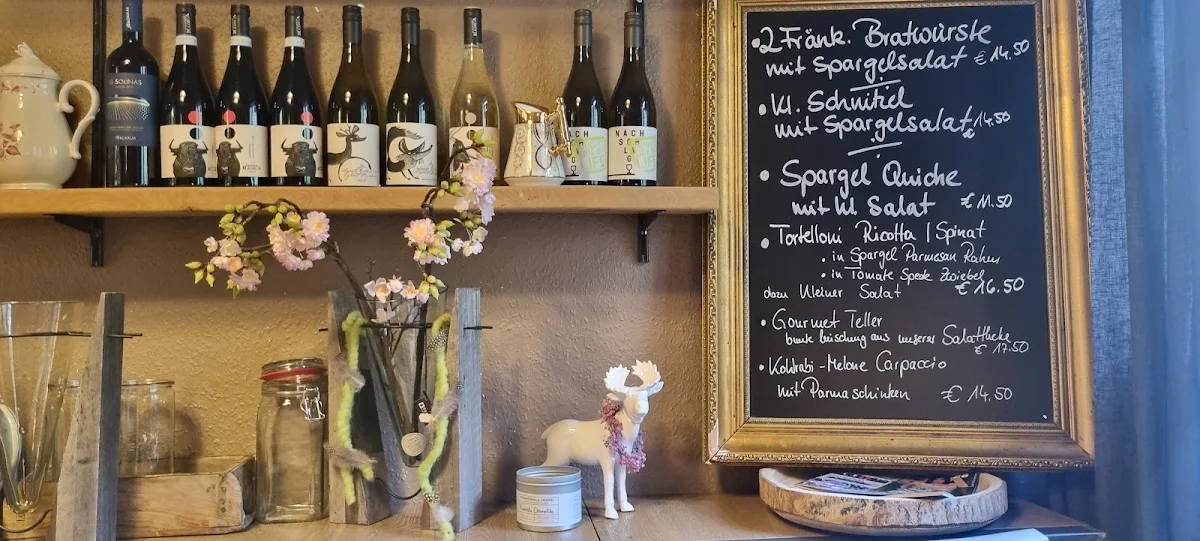 SOLINAS
NACH
SCH
LA
G
•2 Fränk. Bratwürste
mit Spargelsalat € 14.50
• Kl. Schnitzel
mit Spargelsalat € 14.50
• Spargel Quiche
mit kl. Salat € 11.50
• Tortelloni Ricotta | Spinat
• in Spargel Parmesan Rahm
• in Tomate Speck Zwiebel
dazu Kleiner Salat € 16.50
• Gourmet Teller
bunte Mischung aus unserer Salattheke
€ 17.50
• Kohlrabi-Melone Carpaccio
mit Parmaschinken € 14.50